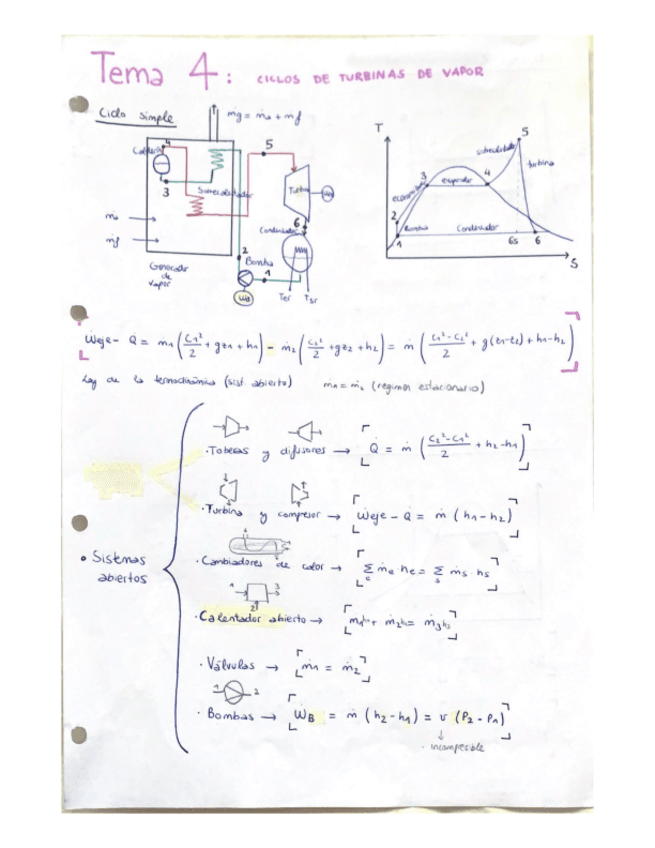 Tema 4: CICLOS DE TURBINAS DE VAPOR
Ciclo simple
ṁg = ṁa + ṁf
Caldera
4
3
Sobrecalentador
5
Turbina
6
Condensador
ṁa
ṁf
Generador de vapor
2
Bomba
1
Ter
Tsr
T
5
sobrecalentador
turbina
3
evaporador
4
economizador
2
Bomba
Condensador
1
6s
6
S
Ẇeje - Q̇ = ṁ1 (C1²/2 + gz1 + h1) - ṁ2 (C2²/2 + gz2 + h2) = ṁ (C1² - C2²/2 + g(z1-z2) + h1-h2)
Ley de la termodinámica (sist. abierto)
ṁ1 = ṁ2 (regimen estacionario)
• Sistemas abiertos
· Toberas y difusores → Q̇ = ṁ (C2² - C1²/2 + h2-h1)
· Turbina y compresor → Ẇeje - Q̇ = ṁ (h1-h2)
· Cambiadores de calor → Σe ṁe he = Σs ṁs · hs
1
3
2
· Calentador abierto → ṁ1h1 + ṁ2h2 = ṁ3h3
· Válvulas → ṁ1 = ṁ2
1
2
· Bombas → ẆB = ṁ (h2-h1) = v (P2-P1)
↓
· incompresible